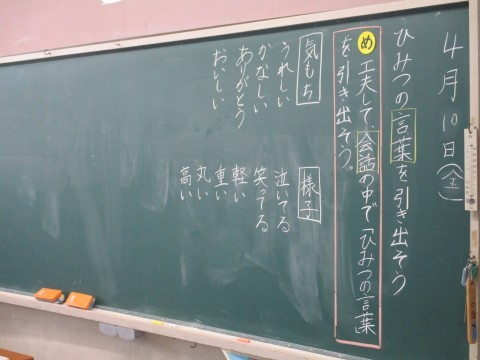 4月10日(金)
ひみつの言葉を引き出そう
め 工夫して、会話の中で「ひみつの言葉
を引き出そう。
気もち
うれしい
かなしい
ありがとう
おいしい
様子
泣いてる
笑ってる
軽い
重い
丸い
高い